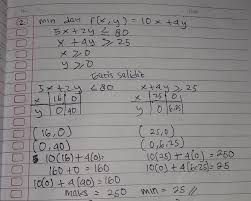 2. min dari f(x,y) = 10x + 4y
5x + 2y ≤ 80
x + 4y ≥ 25
x ≥ 0
y ≥ 0
5x + 2y ≤ 80 x + 4y ≥ 25
x | 16 | 0 x | 25 | 0
y | 0 | 40 y | 0 | 6.25
(16,0) (25,0)
(0,40) (0,6.25)
10(16) + 4(0) 10(25) + 4(0) = 250
160 + 0 = 160 10(0) + 4(6.25) = 25
10(0) + 4(40) = 160
maks = 250 min = 25 //